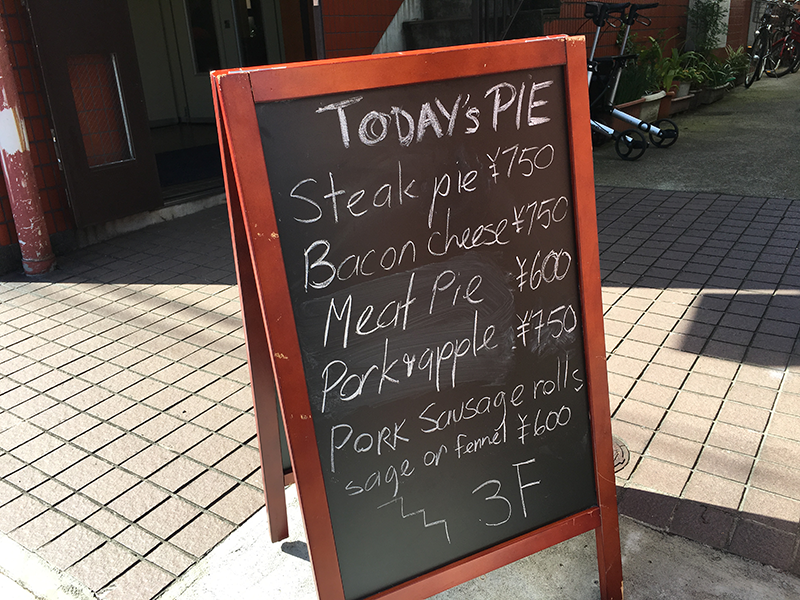 TODAY'S PIE
Steak pie ¥750
Bacon cheese ¥750
Meat Pie ¥600
Pork & apple ¥750
PORK Sausage rolls
sage or fennel ¥600
3F